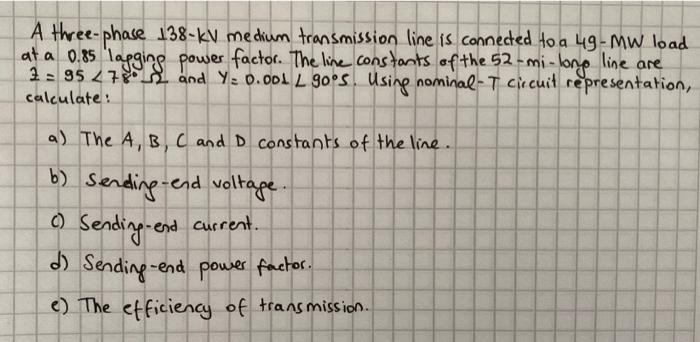 A three-phase 138-kV medium transmission line is connected to a 49-MW load
at a 0.85 lagging power factor. The line constants of the 52-mi-long line are
Z = 95 ∠78° Ω and Y = 0.001 ∠ 90° S. Using nominal-T circuit representation,
calculate:
a) The A, B, C and D constants of the line.
b) Sending-end voltage.
c) Sending-end current.
d) Sending-end power factor.
e) The efficiency of transmission.